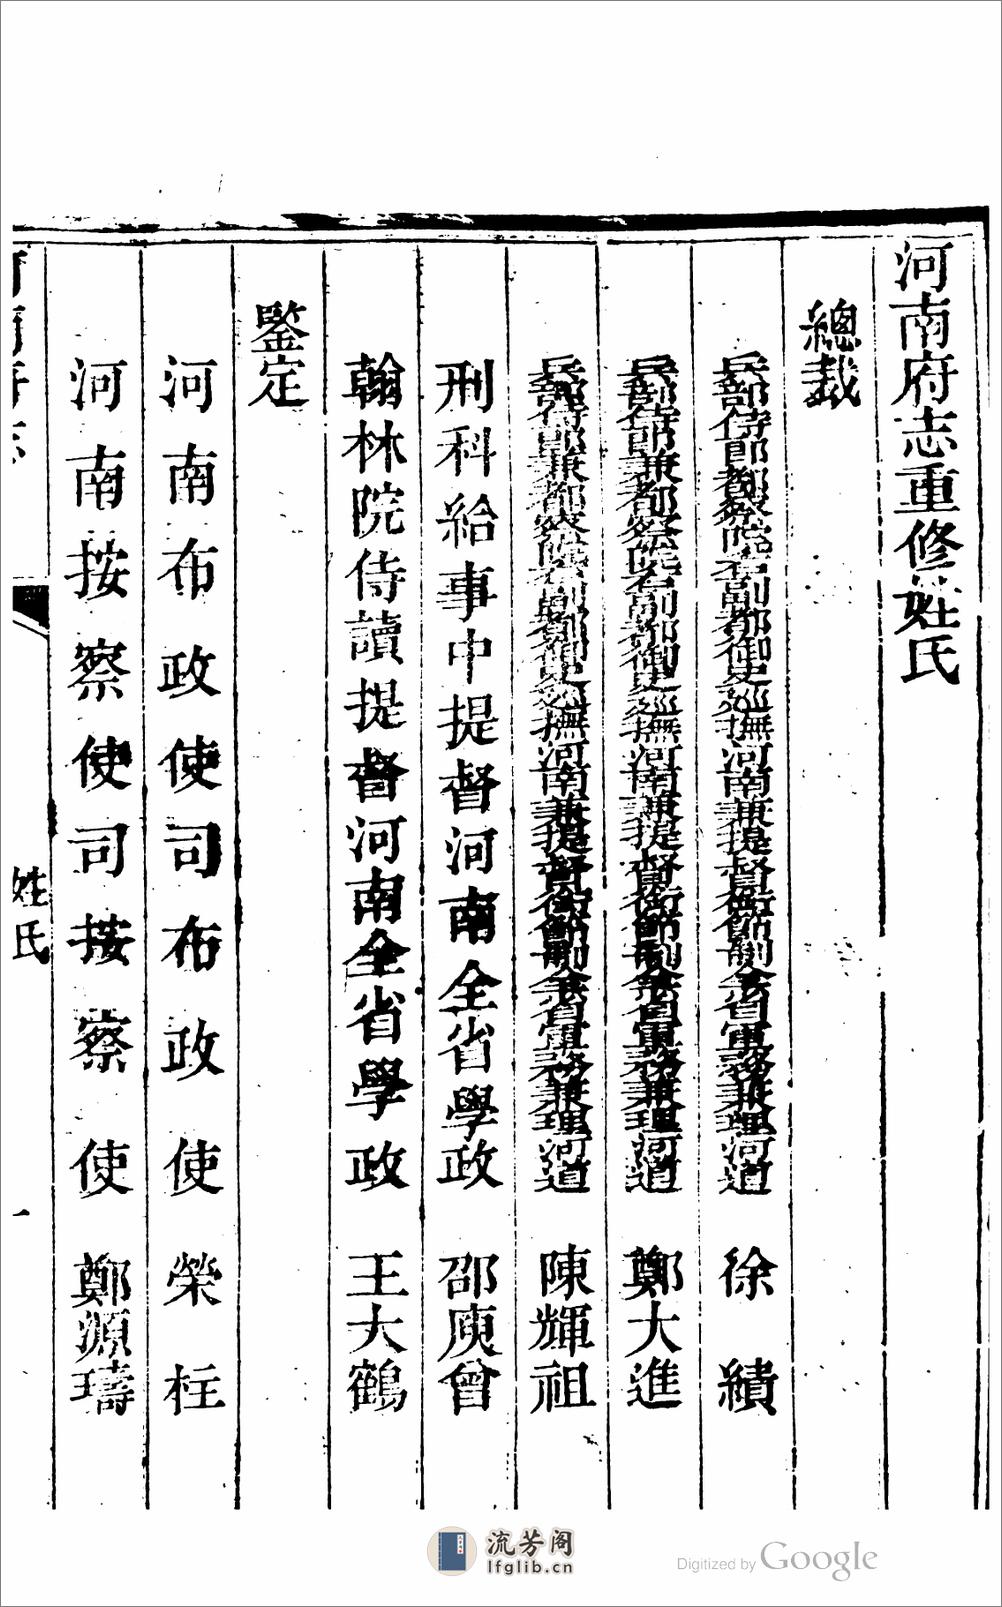 河南府志重修姓氏
總裁
兵部侍郎都察院右副都御史巡撫河南兼提督銜節制全省軍務兼理河道 徐績
兵部侍郎兼都察院右副都御史巡撫河南兼提督銜節制全省軍務兼理河道 鄭大進
兵部侍郎兼都察院右副都御史巡撫河南兼提督銜節制全省軍務兼理河道 陳輝祖
刑科給事中提督河南全省學政 邵庾曾
翰林院侍讀提督河南全省學政 王大鶴
鑒定
河南布政使司布政使 榮柱
河南按察使司按察使 鄭源璹
河南府志 姓氏 一
流芳阁
lfglib.cn
Digitized by Google